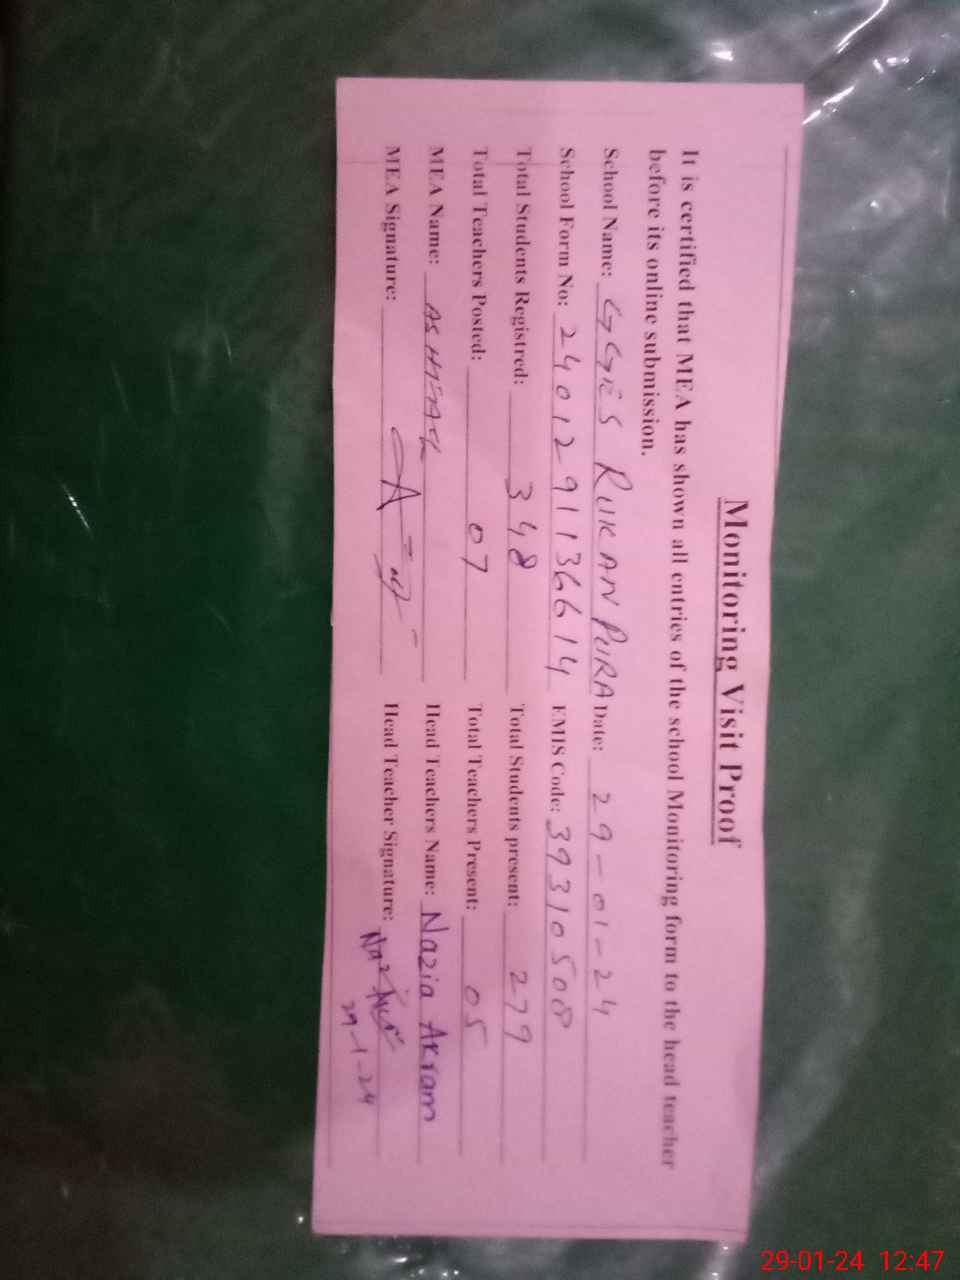 Monitoring Visit Proof
It is certified that MEA has shown all entries of the school Monitoring form to the head teacher
before its online submission.
School Name: GGES RUKAN PURA Date: 29-01-24
School Form No: 2401291136614 EMIS Code: 39310508
Total Students Registred: 348 Total Students present: 279
Total Teachers Posted: 07 Total Teachers Present: 05
MEA Name: ASHFAQ Head Teachers Name: Nazia Akram
MEA Signature: Head Teacher Signature:
29-1-24
29-01-24 12:47